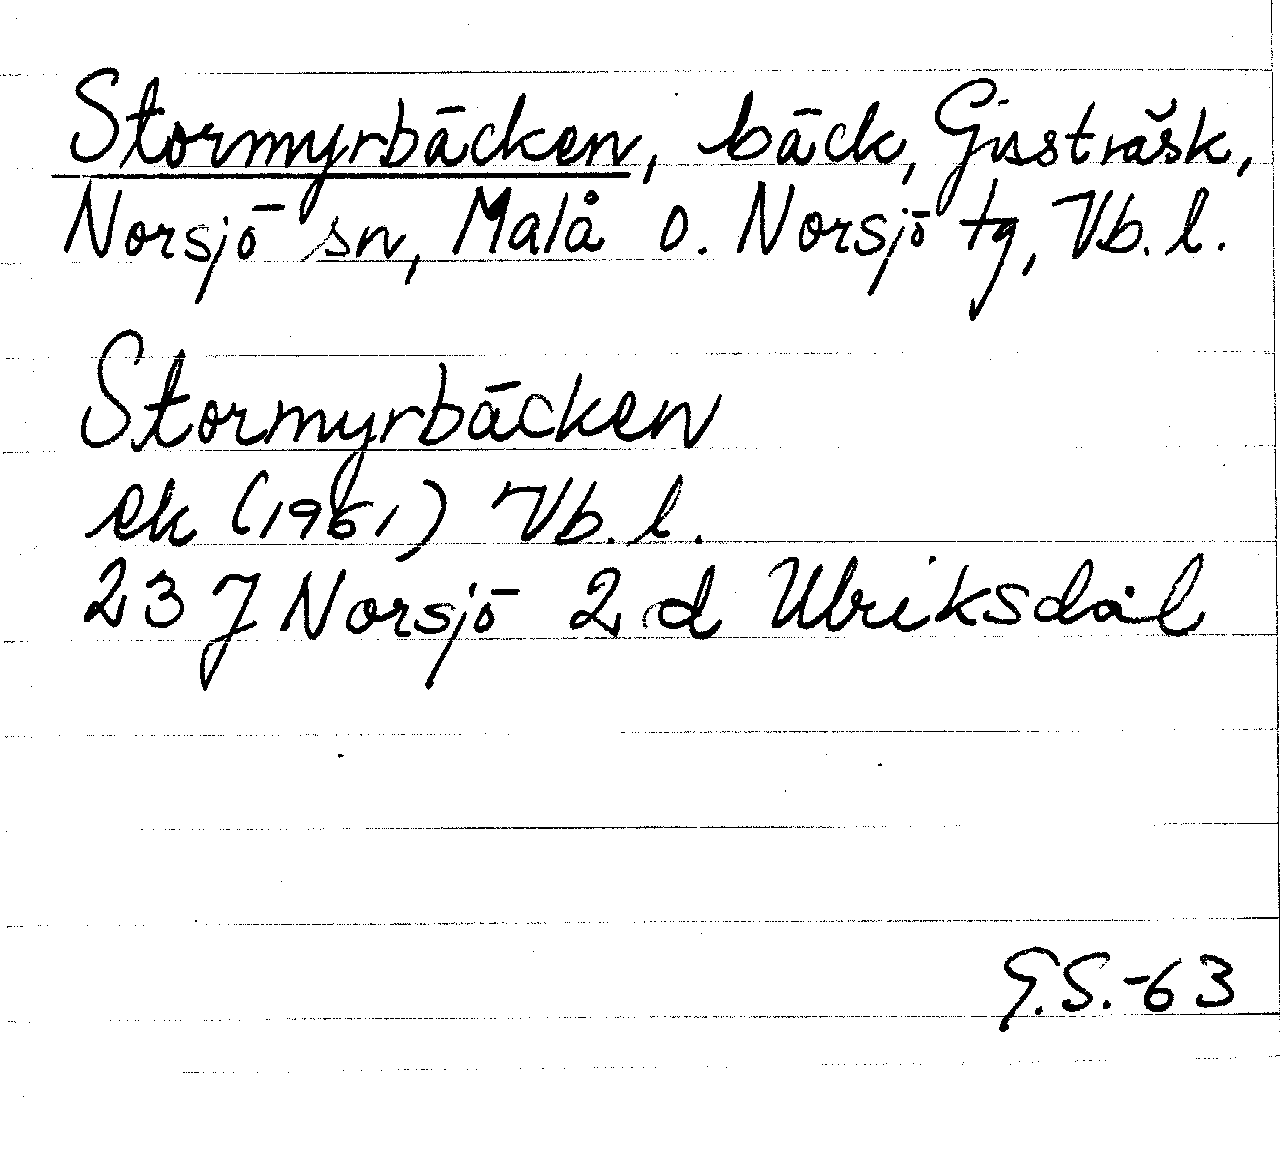 Stormyrbäcken, bäck, Gissträsk,
Norsjö sn, Malå o. Norsjö tg, Vb. l.
Stormyrbäcken
ek (1961) Vb. l.
23 J Norsjö 2 d Ulriksdal
G.S.-63